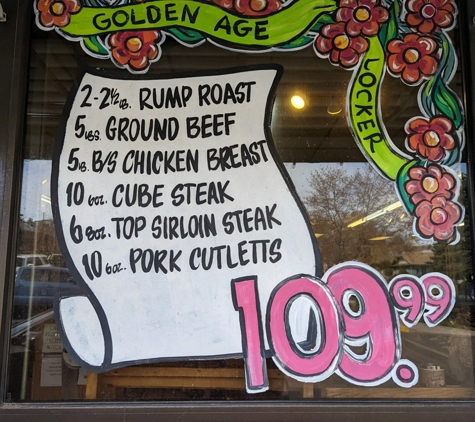 GOLDEN AGE
LOCKER
2-2½ LB. RUMP ROAST
5 LBS. GROUND BEEF
5 LB. B/S CHICKEN BREAST
10 6OZ. CUBE STEAK
6 8OZ. TOP SIRLOIN STEAK
10 6OZ. PORK CUTLETTS
109.99